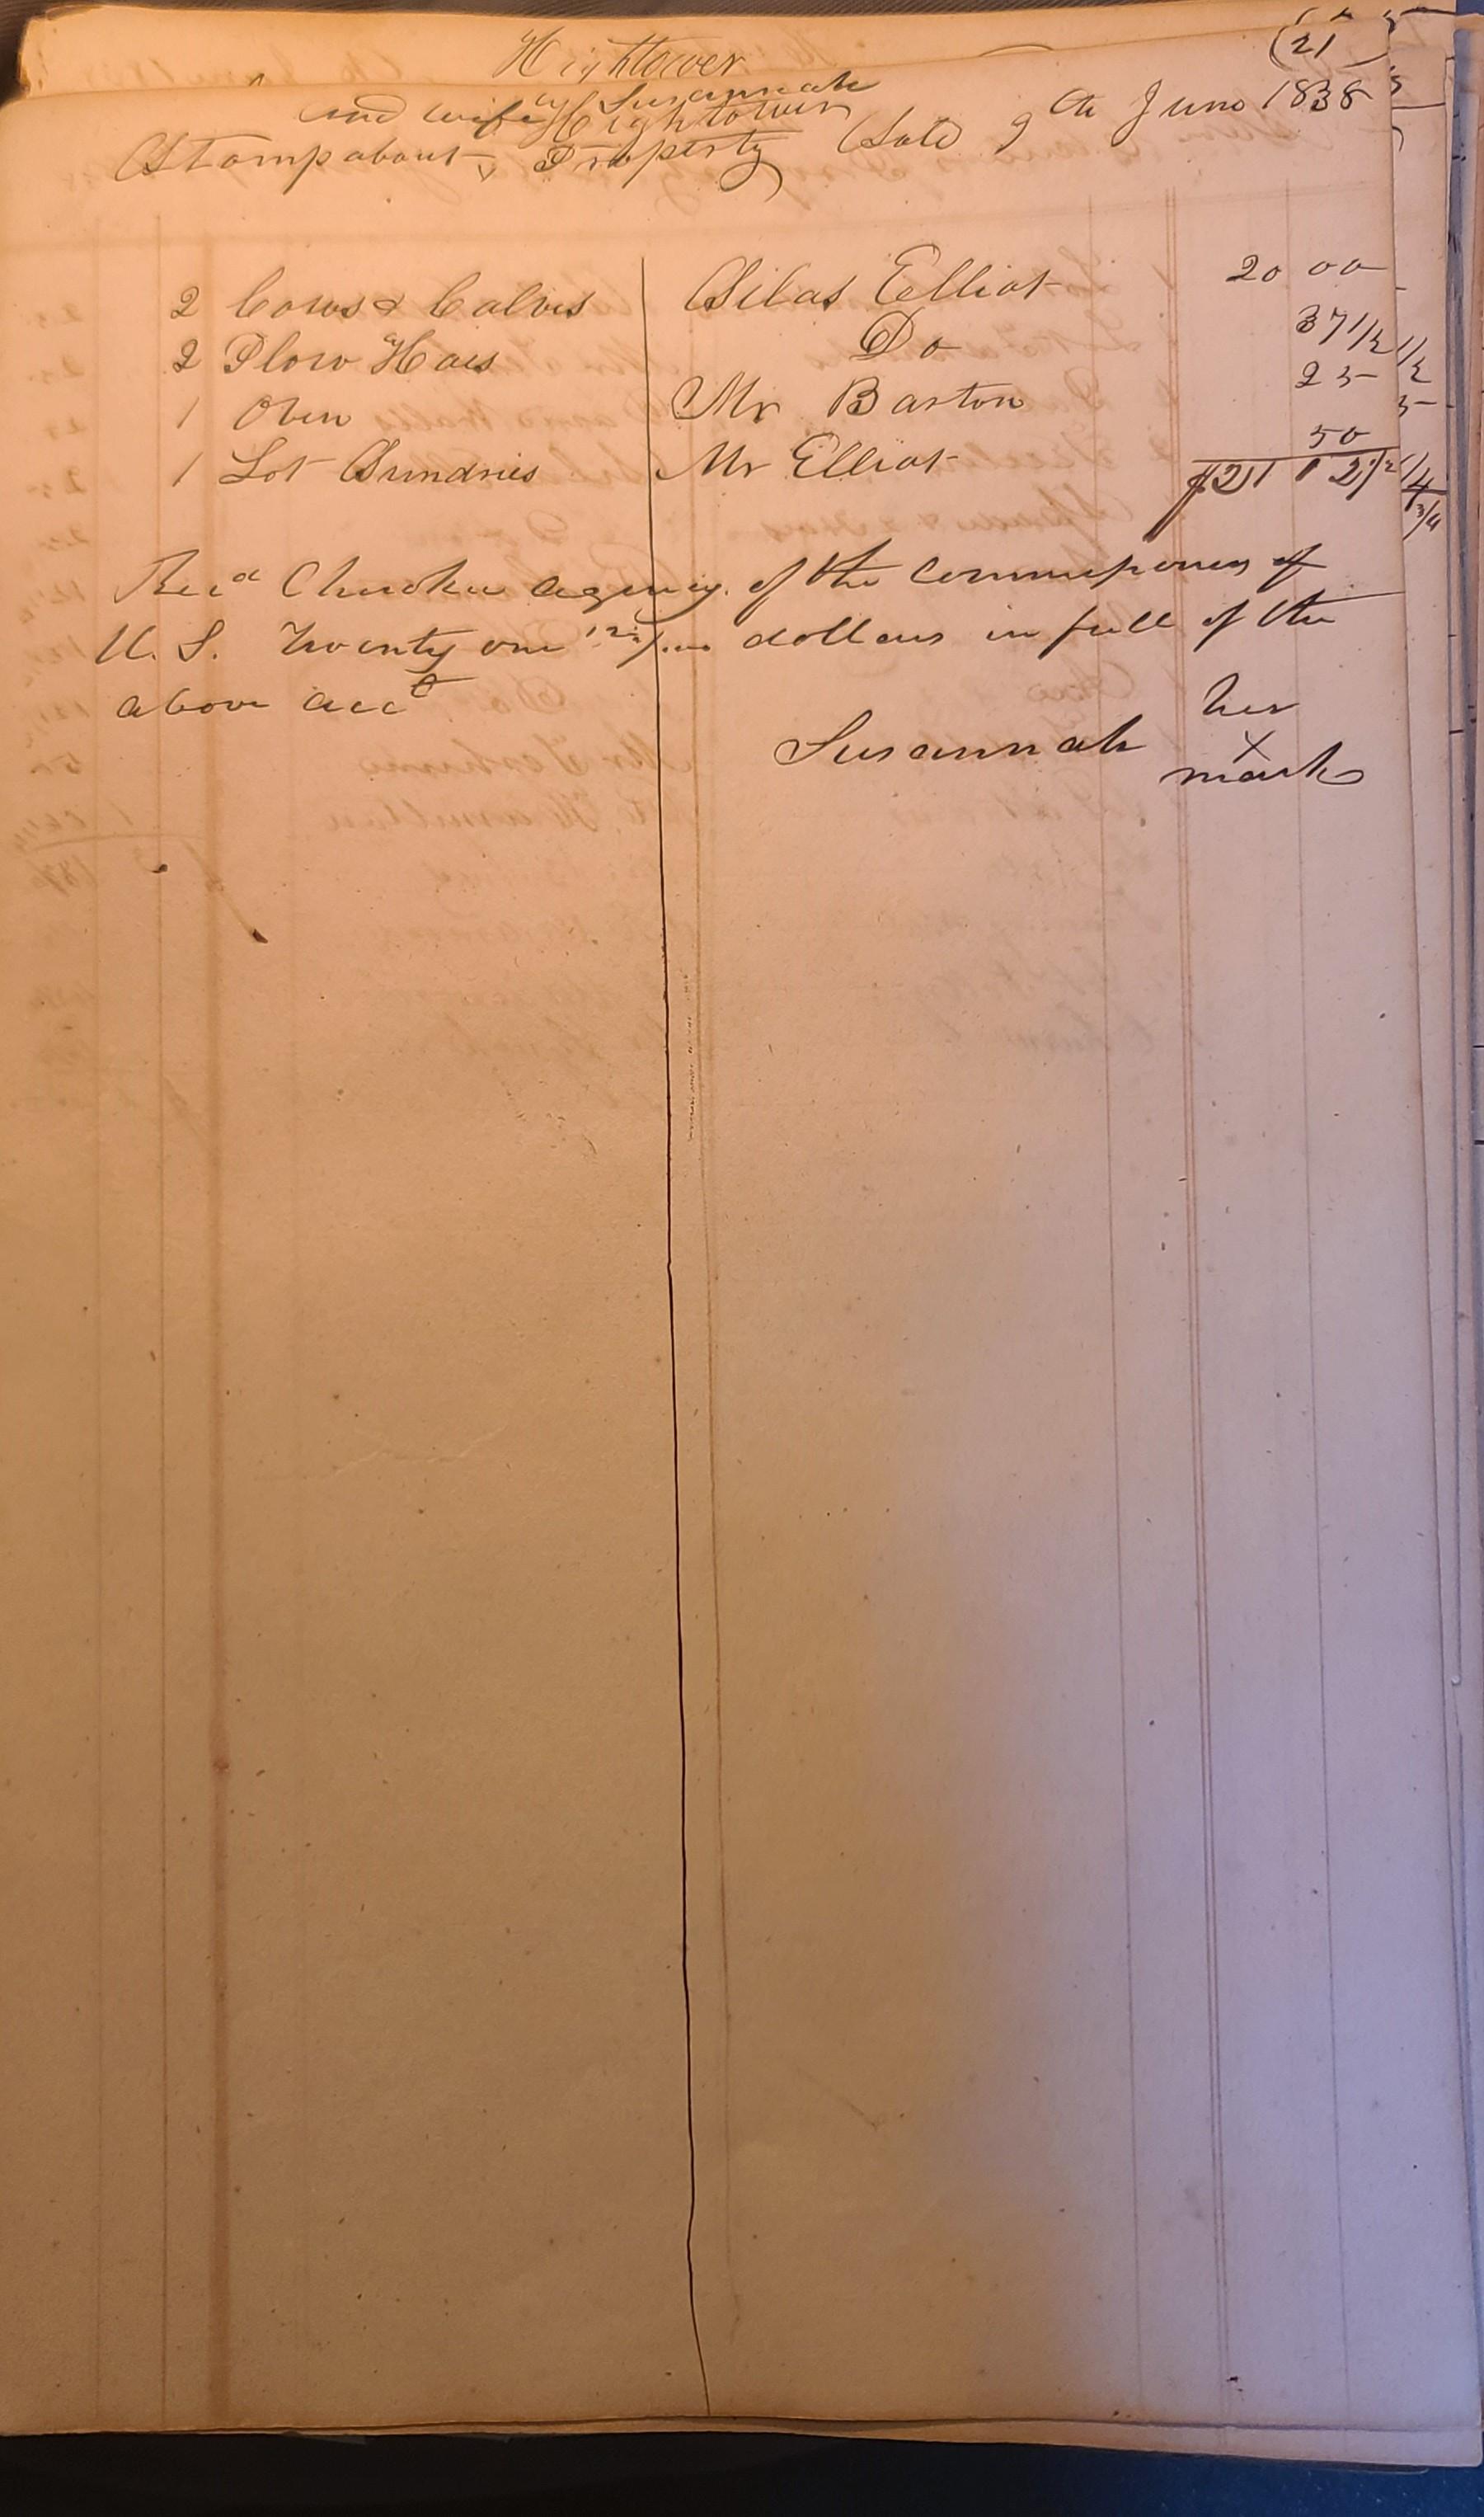 (21)
Hightower
and wife Susannah
Hightower
Stompabout's Property Sold 9th June 1838
2 Cows & Calves Silas Elliot 20 00
2 Plow Hoes Do 37 1/2
1 Oven Mr Barton 25
1 Lot Sundries Mr Elliot 50
$21 12 1/2
Recd Cherokee agency of the commissioners of
U. S. Twenty one 12 1/2/100 dollars in full of the
above acct
her
Susannah X
mark